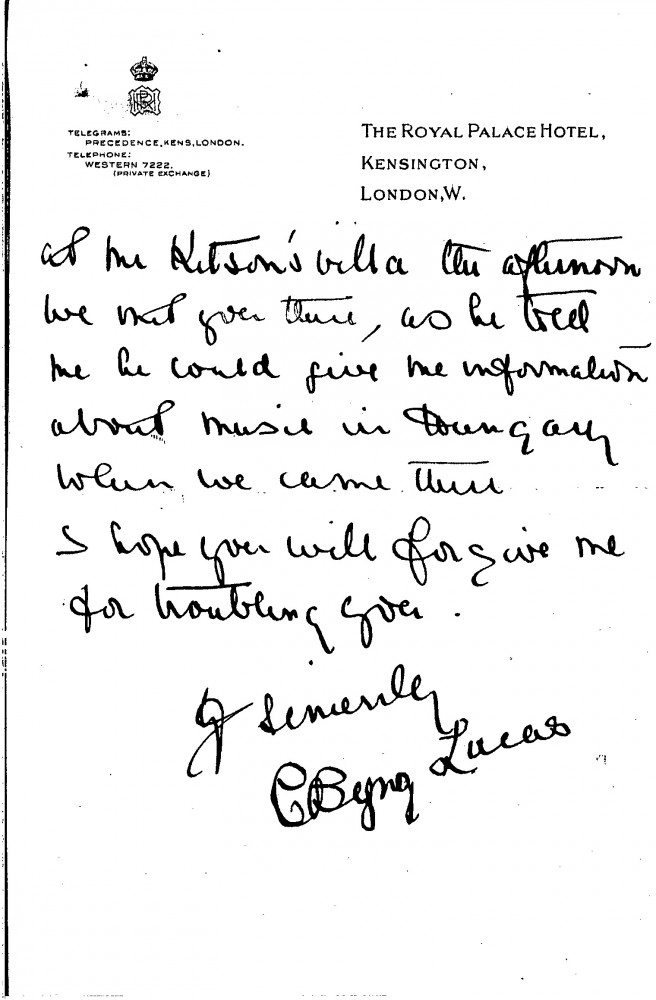 TELEGRAMS:
PRECEDENCE, KENS, LONDON.
TELEPHONE:
WESTERN 7222.
(PRIVATE EXCHANGE)
THE ROYAL PALACE HOTEL,
KENSINGTON,
LONDON, W.
at Mr Kitson's villa the afternoon
we met you there, as he told
me he could give me information
about music in Hungary
when we came there
I hope you will forgive me
for troubling you.
Yr sincerely
C Byng Lucas